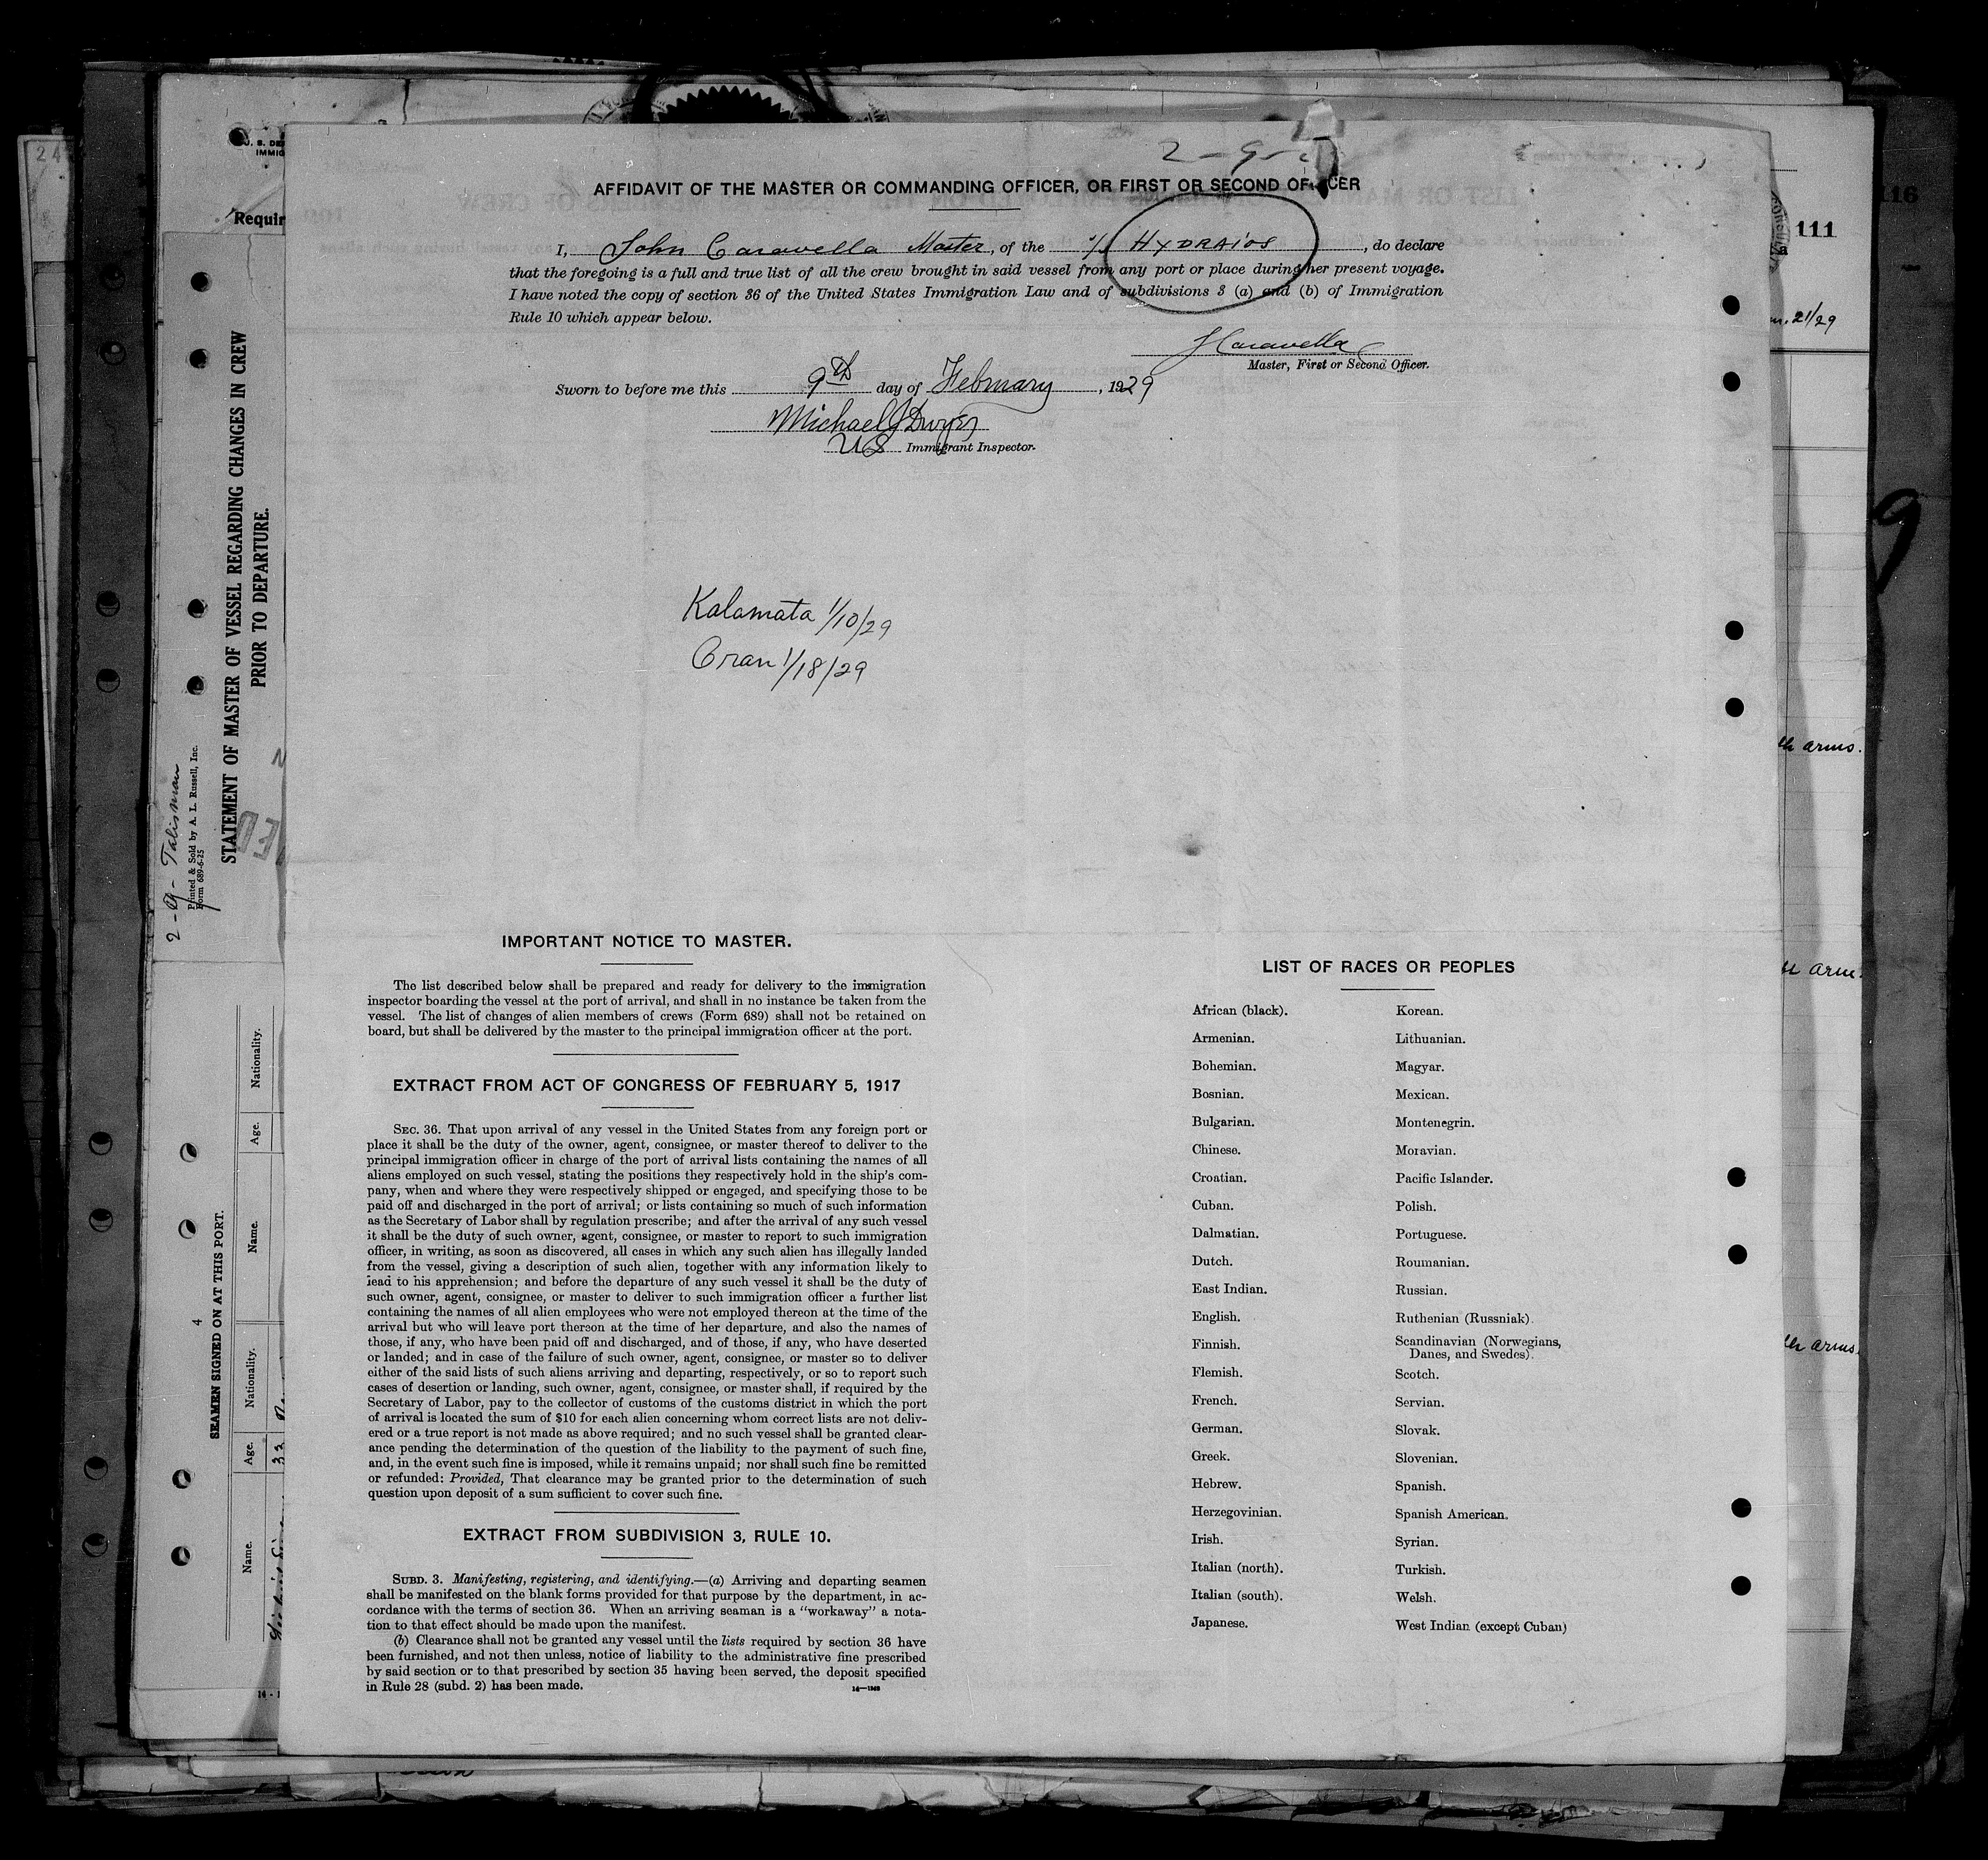 24
U. S. DE
IMMIG
Requir
111
116
21/29
9
th arms.
arm.
th arms.
2-9- Talisman
Printed & Sold by A. L. Russell, Inc.
Form 689-6-25
STATEMENT OF MASTER OF VESSEL REGARDING CHANGES IN CREW
PRIOR TO DEPARTURE.
4
SEAMEN SIGNED ON AT THIS PORT.
Name. Age. Nationality. Name. Age. Nationality.
33
2-9-
AFFIDAVIT OF THE MASTER OR COMMANDING OFFICER, OR FIRST OR SECOND OFFICER
I, John Caravella Master, of the S/S HYDRAIOS, do declare
that the foregoing is a full and true list of all the crew brought in said vessel from any port or place during her present voyage.
I have noted the copy of section 36 of the United States Immigration Law and of subdivisions 3 (a) and (b) of Immigration
Rule 10 which appear below.
J Caravella
Master, First or Second Officer.
Sworn to before me this 9th day of February, 1929
Michael J Dwyer
US Immigrant Inspector.
Kalamata 1/10/29
Oran 1/18/29
IMPORTANT NOTICE TO MASTER.
The list described below shall be prepared and ready for delivery to the immigration
inspector boarding the vessel at the port of arrival, and shall in no instance be taken from the
vessel. The list of changes of alien members of crews (Form 689) shall not be retained on
board, but shall be delivered by the master to the principal immigration officer at the port.
EXTRACT FROM ACT OF CONGRESS OF FEBRUARY 5, 1917
SEC. 36. That upon arrival of any vessel in the United States from any foreign port or
place it shall be the duty of the owner, agent, consignee, or master thereof to deliver to the
principal immigration officer in charge of the port of arrival lists containing the names of all
aliens employed on such vessel, stating the positions they respectively hold in the ship's com-
pany, when and where they were respectively shipped or engaged, and specifying those to be
paid off and discharged in the port of arrival; or lists containing so much of such information
as the Secretary of Labor shall by regulation prescribe; and after the arrival of any such vessel
it shall be the duty of such owner, agent, consignee, or master to report to such immigration
officer, in writing, as soon as discovered, all cases in which any such alien has illegally landed
from the vessel, giving a description of such alien, together with any information likely to
lead to his apprehension; and before the departure of any such vessel it shall be the duty of
such owner, agent, consignee, or master to deliver to such immigration officer a further list
containing the names of all alien employees who were not employed thereon at the time of the
arrival but who will leave port thereon at the time of her departure, and also the names of
those, if any, who have been paid off and discharged, and of those, if any, who have deserted
or landed; and in case of the failure of such owner, agent, consignee, or master so to deliver
either of the said lists of such aliens arriving and departing, respectively, or so to report such
cases of desertion or landing, such owner, agent, consignee, or master shall, if required by the
Secretary of Labor, pay to the collector of customs of the customs district in which the port
of arrival is located the sum of $10 for each alien concerning whom correct lists are not deliv-
ered or a true report is not made as above required; and no such vessel shall be granted clear-
ance pending the determination of the question of the liability to the payment of such fine,
and, in the event such fine is imposed, while it remains unpaid; nor shall such fine be remitted
or refunded: Provided, That clearance may be granted prior to the determination of such
question upon deposit of a sum sufficient to cover such fine.
EXTRACT FROM SUBDIVISION 3, RULE 10.
SUBD. 3. Manifesting, registering, and identifying.—(a) Arriving and departing seamen
shall be manifested on the blank forms provided for that purpose by the department, in ac-
cordance with the terms of section 36. When an arriving seaman is a "workaway" a nota-
tion to that effect should be made upon the manifest.
(b) Clearance shall not be granted any vessel until the lists required by section 36 have
been furnished, and not then unless, notice of liability to the administrative fine prescribed
by said section or to that prescribed by section 35 having been served, the deposit specified
in Rule 28 (subd. 2) has been made.
LIST OF RACES OR PEOPLES
African (black). Korean.
Armenian. Lithuanian.
Bohemian. Magyar.
Bosnian. Mexican.
Bulgarian. Montenegrin.
Chinese. Moravian.
Croatian. Pacific Islander.
Cuban. Polish.
Dalmatian. Portuguese.
Dutch. Roumanian.
East Indian. Russian.
English. Ruthenian (Russniak).
Finnish. Scandinavian (Norwegians,
Danes, and Swedes).
Flemish. Scotch.
French. Servian.
German. Slovak.
Greek. Slovenian.
Hebrew. Spanish.
Herzegovinian. Spanish American.
Irish. Syrian.
Italian (north). Turkish.
Italian (south). Welsh.
Japanese. West Indian (except Cuban)